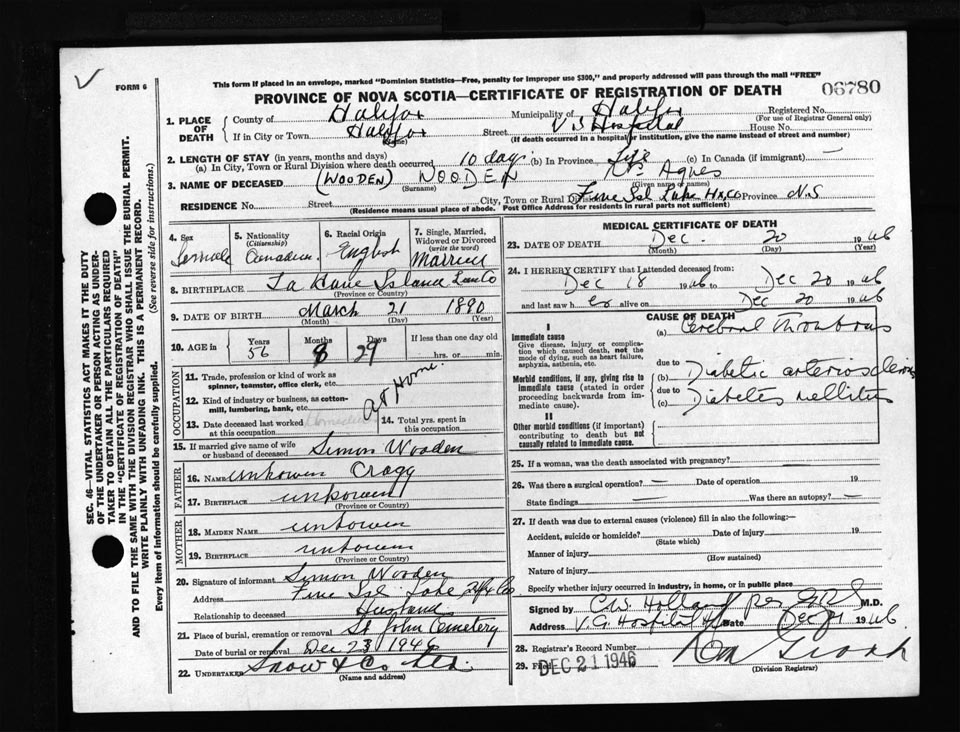 This form if placed in an envelope, marked "Dominion Statistics—Free, penalty for improper use $300," and properly addressed will pass through the mail "FREE"
FORM 6
06780
PROVINCE OF NOVA SCOTIA—CERTIFICATE OF REGISTRATION OF DEATH
1. PLACE OF DEATH
County of Halifax
Municipality of Halifax
Registered No.
(For use of Registrar General only)
If in City or Town Halifax
(Name)
Street V G Hospital House No.
(If death occurred in a hospital or institution, give the name instead of street and number)
2. LENGTH OF STAY (in years, months and days)
(a) In City, Town or Rural Division where death occurred 10 days (b) In Province Life (c) In Canada (if immigrant) —
3. NAME OF DECEASED (WOODEN) WOODEN Agnes
(Surname) (Given name or names)
RESIDENCE No. Street City, Town or Rural Division Five Isl Lake Hx Co Province N.S
(Residence means usual place of abode. Post Office Address for residents in rural parts not sufficient)
4. Sex
Female
5. Nationality
(Citizenship)
Canadian
6. Racial Origin
English
7. Single, Married, Widowed or Divorced
(write the word)
Married
8. BIRTHPLACE La Have Island
(Province or Country)
9. DATE OF BIRTH March 21 1890
(Month) (Day) (Year)
10. AGE in
Years Months Days If less than one day old
56 8 29 hrs. or min.
OCCUPATION
11. Trade, profession or kind of work as spinner, teamster, office clerk, etc.
12. Kind of industry or business, as cotton-mill, lumbering, bank, etc.
At Home
13. Date deceased last worked at this occupation
14. Total yrs. spent in this occupation
15. If married give name of wife or husband of deceased Simon Wooden
FATHER
16. NAME unkowen Cragg
17. BIRTHPLACE unkowen
(Province or Country)
MOTHER
18. MAIDEN NAME unkowen
19. BIRTHPLACE unkowen
(Province or Country)
20. Signature of informant Simon Wooden
Address Five Isl Lake Hfx Co
Relationship to deceased Husband
21. Place of burial, cremation or removal St John Cemetery
Date of burial or removal Dec 23 1946
22. UNDERTAKER Snow & Co Ltd.
(Name and address)
MEDICAL CERTIFICATE OF DEATH
23. DATE OF DEATH Dec. 20 1946
(Month) (Day) (Year)
24. I HEREBY CERTIFY that I attended deceased from
Dec 18 1946 to Dec 20 1946
and last saw her alive on Dec 20 1946
CAUSE OF DEATH
I
Immediate cause
Give disease, injury or complication which caused death, not the mode of dying, such as heart failure, asphyxia, asthenia, etc.
(a) Cerebral Thrombosis
due to
Morbid conditions, if any, giving rise to immediate cause (stated in order proceeding backwards from immediate cause).
(b) Diabetic arteriosclerosis
due to
(c) Diabetes Mellitus
II
Other morbid conditions (if important) contributing to death but not causally related to immediate cause.
25. If a woman, was the death associated with pregnancy?
26. Was there a surgical operation? — Date of operation 19
State findings — Was there an autopsy? —
27. If death was due to external causes (violence) fill in also the following:—
Accident, suicide or homicide? Date of injury 19
(State which)
Manner of injury
(How sustained)
Nature of injury
Specify whether injury occurred in industry, in home, or in public place
Signed by C.W. Holland per M.D.
Address V.G. Hospital Hfx Date Dec 21 1946
28. Registrar's Record Number
29. Filed DEC 21 1946
(Division Registrar)
SEC. 46—VITAL STATISTICS ACT MAKES IT THE DUTY
OF THE UNDERTAKER OR PERSON ACTING AS UNDER-
TAKER TO OBTAIN ALL THE PARTICULARS REQUIRED
IN THE "CERTIFICATE OF REGISTRATION OF DEATH"
AND TO FILE THE SAME WITH THE DIVISION REGISTRAR WHO SHALL ISSUE THE BURIAL PERMIT.
WRITE PLAINLY WITH UNFADING INK. THIS IS A PERMANENT RECORD.
Every item of information should be carefully supplied. (See reverse side for instructions.)